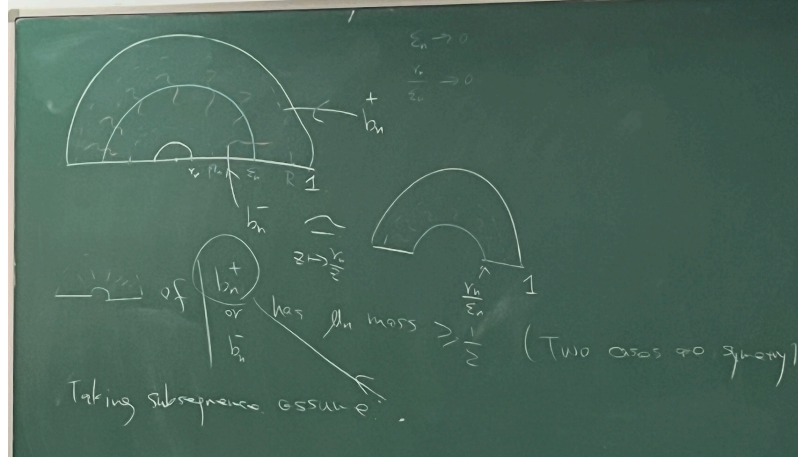 εₙ → 0
rₙ/εₙ → 0
bₙ⁺
rₙ εₙ R 1
bₙ⁻
≃
z ↦ rₙ/z
rₙ/εₙ 1
of bₙ⁺ or bₙ⁻ has μₙ mass ≥ 1/2 (Two cases symmetry)
Taking subsequence assume: